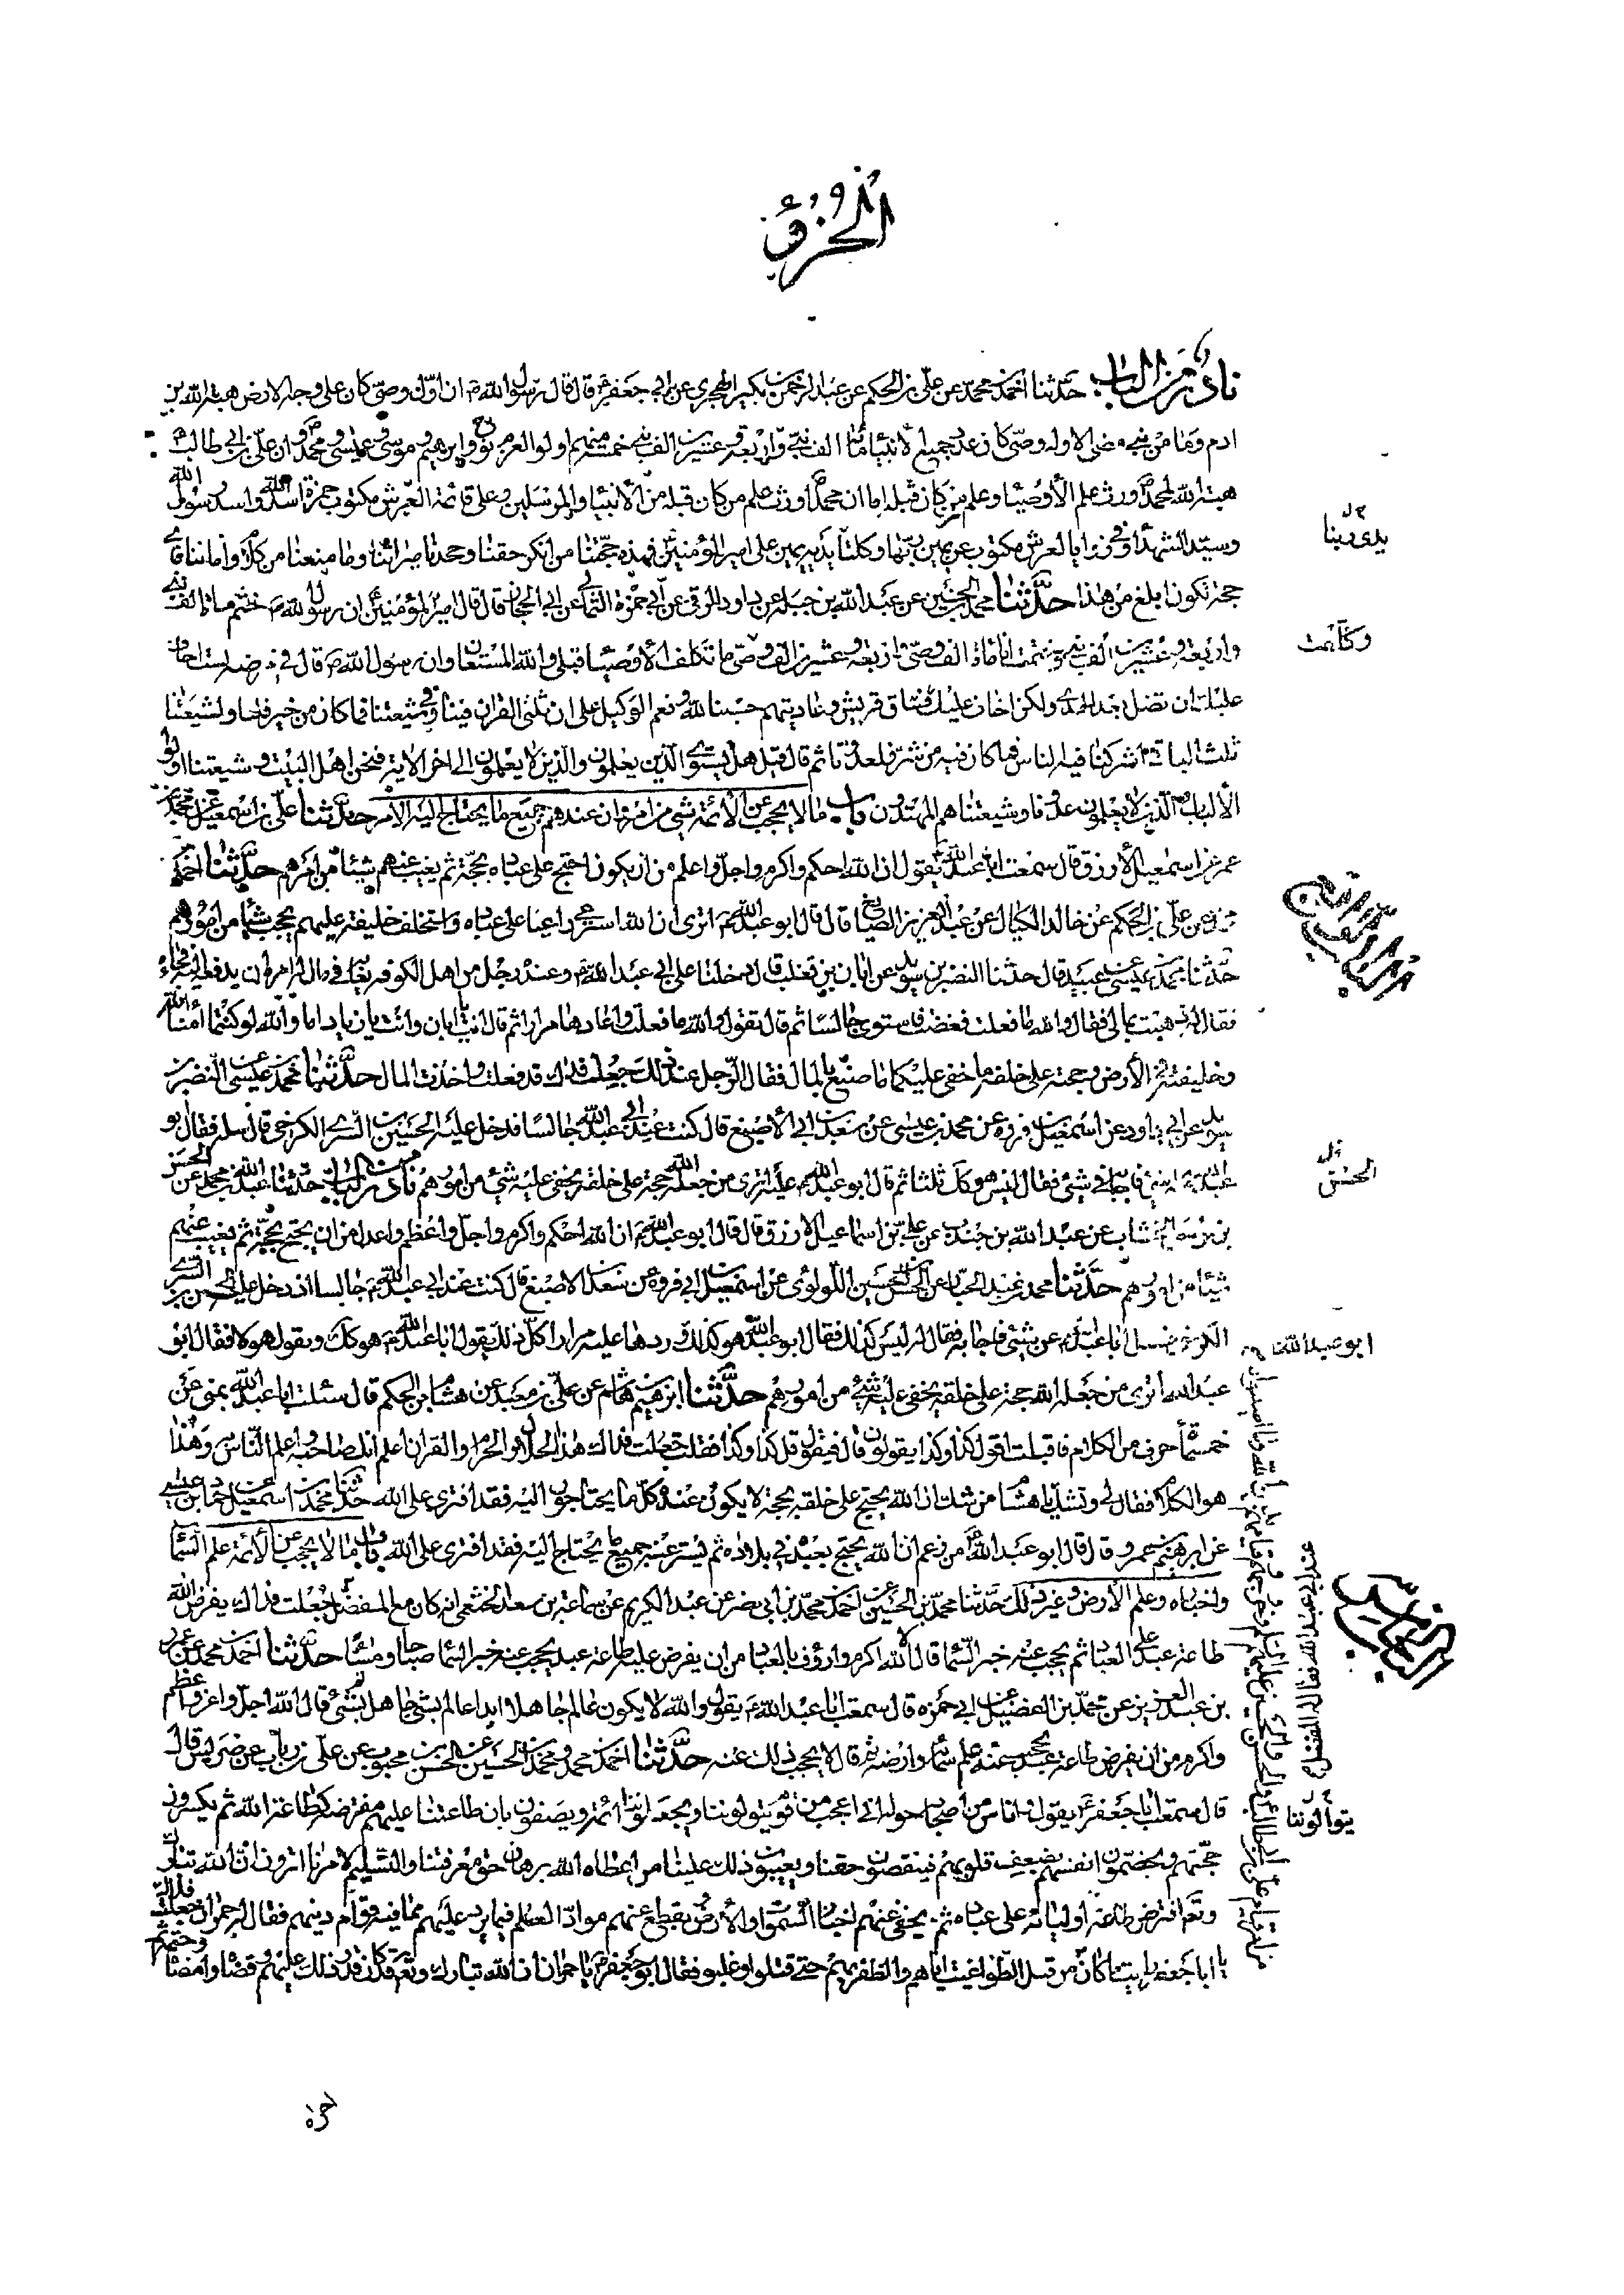 الجزؤ
نادر من الباب حدثنا احمد بن محمد عن علي بن الحكم عن عبد الرحمن بن بكير الهجري عن ابي جعفر ع قال قال رسول الله ص ان اول وصي كان على وجه الارض هبة الله بن
ادم وما من نبي مضى الا وله وصي كان عدد جميع الانبياء مائة الف نبي واربعة وعشرين الف نبي خمسة منهم اولوا العزم نوح وابرهيم وموسى وعيسى ومحمد وان علي بن ابي طالب
هبة الله لمحمد ورث علم الاوصياء وعلم من كان قبله اما ان محمدا ورث علم من كان قبله من الانبياء والمرسلين وعلى قائمة العرش مكتوب حمزة اسد الله واسد رسول الله
وسيد الشهداء وفي زوايا العرش مكتوب عن يمين ربها وكلتا يديه يمين علي امير المؤمنين فهذه حجتنا من انكر حقنا وجحدنا ميراثنا وما منعنا من الكلام وامامنا فاي
حجة تكون ابلغ من هذا حدثنا محمد بن الحسين عن عبد الله بن جبلة عن داود الرقي عن ابي حمزة الثمالي عن ابي الحجاز قال قال امير المؤمنين ان رسول الله ص ختم مائة الف نبي
واربعة وعشرين الف نبي وختمت انا مائة الف وصي واربعة وعشرين الف وصي ما تكلف الاوصياء قبلي والله المستعان وان رسول الله ص قال في مرضه لست اخاف
عليك ان تضل بعد الهدى ولكن اخاف عليك فساق قريش وعاديتهم حسبنا الله ونعم الوكيل على ان ثلثي القران فينا وفي شيعتنا فما كان من خير فلنا ولشيعتنا
ثلث الباقي اشركنا فيه الناس فما كان فيه من شر فلعدونا ثم قال قل هل يستوي الذين يعلمون والذين لا يعلمون الى اخر الاية فنحن اهل البيت وشيعتنا اولوا
الالباب والذين لا يعلمون عدونا وشيعتنا هم المهتدون باب ما لا يحجب عن الائمة شي من امر وان عندهم جميع ما يحتاج اليه الامر حدثنا علي بن اسمعيل عن محمد بن
عمر عن اسمعيل الازرق قال سمعت ابا عبد الله ع يقول ان الله احكم واكرم واجل واعلم من ان يكون احتج على عباده بحجة ثم يغيب عنهم شيئا من امرهم حدثنا احمد بن
محمد عن علي بن الحكم عن خالد الكيال عن عبد العزيز الصايغ قال قال ابو عبد الله ع اترى ان الله استرعى راعيا على عباده واستخلف خليفة عليهم يحجب شيئا من امورهم
حدثنا محمد بن عيسى عن عبيد قال حدثنا النضر بن سويد عن ابان بن تغلب قال دخلنا على ابي عبد الله ع وعنده رجل من اهل الكوفة يعاتبه في مال له امره ان يدفعه اليه فجاء
فقال له ذهبت بمالي فقال والله ما فعلت فغضب فاستوى جالسا ثم قال تقول والله ما فعلت واعادها مرارا ثم قال انت يا ابان وانت يا زياد اما والله لو كنتما امناء الله
وخليفته في الارض وحجته على خلقه ما خفي عليكما ما صنع بالمال فقال الرجل عند ذلك جعلت فداك قد فعلت واخذت المال حدثنا محمد بن عيسى عن النضر بن
سويد عن ابي داود عن اسمعيل بن فروه عن محمد بن عيسى عن سعد بن ابي الاصبغ قال كنت عند ابي عبد الله جالسا فدخل عليه الحسين بن السري الكرخي قال سله فقال ابو
عبد الله ع فاجابه في شئ فقال ليس هو كك ثلثا ثم قال ابو عبد الله ع اترى من جعله الله حجة على خلقه يخفى عليه شئ من امورهم نادر من الباب حدثنا عبد الله بن محمد عن الحسن
بن موسى الخشاب عن عبد الله بن جندب عن علي بن اسماعيل الازرق قال قال ابو عبد الله ع ان الله احكم واكرم واجل واعظم واعدل من ان يحتج بحجة ثم يغيب عنهم
شيئا من امورهم حدثنا محمد بن عبد الجبار عن الحسن بن الحسين اللؤلؤي عن اسمعيل بن ابي فروه عن سعد بن الاصبغ قال كنت عند ابي عبد الله ع جالسا اذ دخل عليه الحسن بن السري
الكرخي فسال ابا عبد الله ع عن شئ فاجابه فقال له ليس كذلك فقال ابو عبد الله هو كذلك ورددها عليه مرارا كل ذلك يقول ابا عبد الله ع هو كك ويقول هو لا فقال ابو
عبد الله اترى من جعله الله حجة على خلقه يخفى عليه شئ من امورهم حدثنا ابرهيم بن هاشم عن علي بن معبد عن هشام بن الحكم قال سئلت ابا عبد الله بمنى عن
خمسمائة حرف من الكلام فاقبلت اقول كذا وكذا يقولون قال فيقول قل كذا وكذا فقلت جعلت فداك هذا الحلال والحرام والقران اعلم انك صاحبه واعلم الناس به وهذا
هو الكلام فقال لي وتشك يا هشام من شك ان الله يحتج على خلقه بحجة لا يكون عنده كل ما يحتاجون اليه فقد افترى على الله حدثنا محمد بن اسمعيل عن حماد بن عيسى
عن ابرهيم بن عمر وقال قال ابو عبد الله من زعم ان الله يحتج بعبد في بلاده ثم يستر عنه جميع ما يحتاج اليه فقد افترى على الله باب ما لا يحجب عن الائمة علم السماء
واخباره وعلم الارض وغير ذلك حدثنا محمد بن الحسين عن احمد بن محمد بن ابي نصر عن عبد الكريم عن سماعة بن سعد الخثعمي انه كان مع المفضل جعلت فداك يفرض الله
طاعة عبد على العباد ثم يحجب عنه خبر السماء قال لا الله اكرم واروف بالعباد من ان يفرض عليه طاعة عبد يحجب عنه خبر السماء صباحا ومساء حدثنا احمد بن محمد عن عمر
بن عبد العزيز عن محمد بن الفضيل عن ابي حمزه قال سمعت ابا عبد الله ع يقول والله لا يكون عالم جاهلا ابدا عالم بشئ جاهل بشئ قال الله اجل واعز واعظم
واكرم من ان يفرض طاعة عبد يحجب عنه علم سمائه وارضه ثم قال لا يحجب ذلك عنه حدثنا احمد بن محمد ومحمد بن الحسين عن الحسن بن محبوب عن علي بن رياب عن ضريس قال
قال سمعت ابا جعفر ع يقول اناس من اصحابنا حوله اني اعجب من قوم يتولوننا ويجعلوننا ائمة ويصفون بان طاعتنا عليهم مفترضة كطاعة الله ثم يكسرون
حجتهم ويخصمون انفسهم بضعف قلوبهم فينقصون حقنا ويعيبون ذلك علينا من اعطاه الله برهان حق معرفتنا والتسليم لامرنا اترون ان الله تبارك
وتعم افترض طاعة اوليائه على عباده ثم يخفى عنهم اخبار السموات والارض ويقطع عنهم مواد العلم فيما يرد عليهم مما فيه قوام دينهم فقال له حمران جعلت فداك
يا ابا جعفر ارايت ما كان من قتل الطواغيت اياهم والظفر بهم حتى قتلوا وغلبوا فقال ابو جعفر يا حمران ان الله تبارك وتعم قد كان قدر ذلك عليهم وقضاه وامضاه وحتمه ثم
يدي ربنا
وختمت
الحسن
ابو عبد الله
عند ابي عبد الله فقال له المفضل
يتوالوننا
اجره